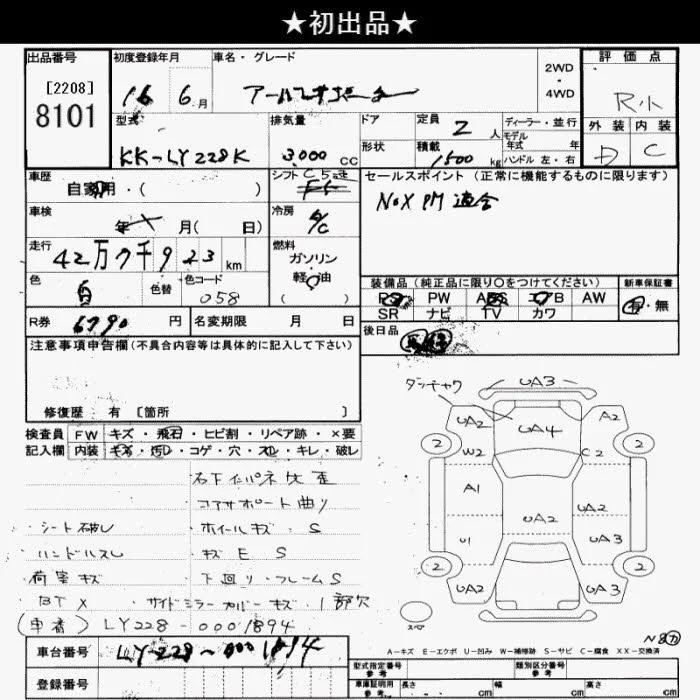 ★初出品★
出品番号
[2208]
8101
初度登録年月
16 6月
車名・グレード
2WD
・
4WD
評価点
R小
外装 内装
D C
型式
KK-LY228K
排気量
3,000 CC
ドア
形状
定員 2 人
積載 1500 kg
ディーラー・並行
モデル
年式 年
ハンドル 左・右
車歴
自家用・( )
シフト
C5速
セールスポイント (正常に機能するものに限ります)
NOX PM 適合
車検
年 月( 日)
冷房
A/C
走行
42万7千923km
燃料
ガソリン
軽油
( )
色
白
色替
色コード
058
装備品 (純正品に限り○をつけてください)
PS PW ABS エアB AW
SR ナビ TV カワ
新車保証書
有・無
R券 6790 円
名変期限 月 日
後日品
注意事項申告欄(不具合内容等は具体的に記入して下さい)
修復歴 有 [箇所 ]
検査員 FW キズ・飛石・ヒビ割・リペア跡・×要
記入欄 内装 キズ・汚レ・コゲ・穴・スレ・キレ・破レ
右下インパネ 欠 歪
コアサポート曲り
・シート破レ ・ホイールキズ・S
・ハンドルスレ ・キズ E S
・荷室キズ ・下回り・フレームS
・BT × ・サイドミラーカバーキズ・1部欠
(車番) LY228-0001894
車台番号 LY228-0001894
登録番号
UA3
UA2 UA4 A2
2 W2 C2 2
A1
UA2 UA2
U1 UA3
2 2
UA2 UA3
スペア
A-キズ E-エクボ U-凹み W-補修跡 S-サビ C-腐食 XX-交換済
型式指定番号
参考
類別区分番号
参考
車庫証明用
参考
長さ cm 幅 cm 高さ cm